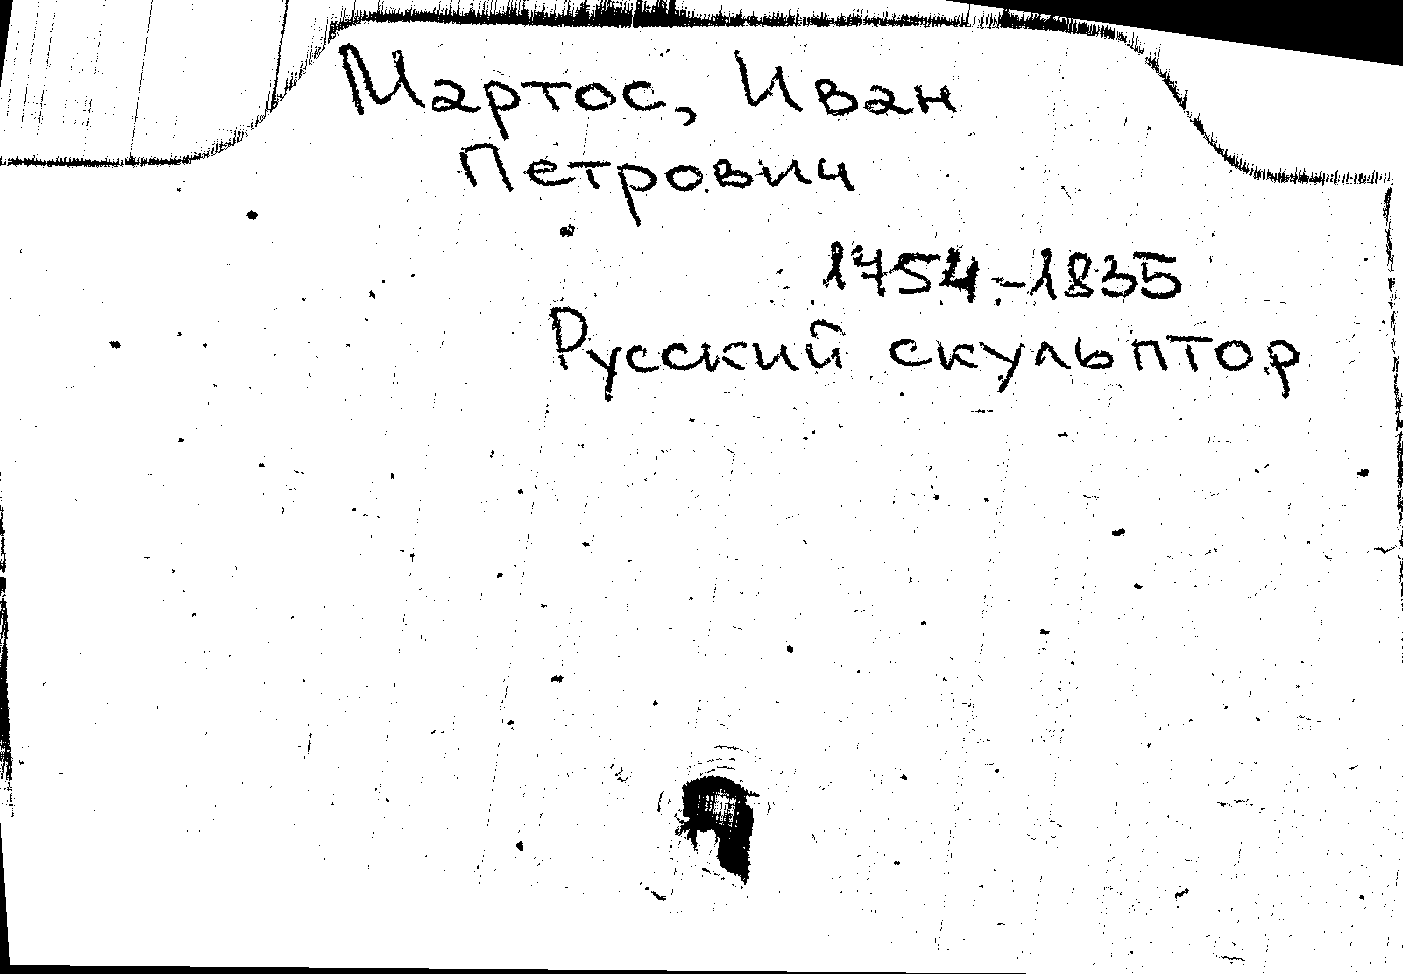 Мартос, Иван
Петрович
1754-1835
Русский скульптор